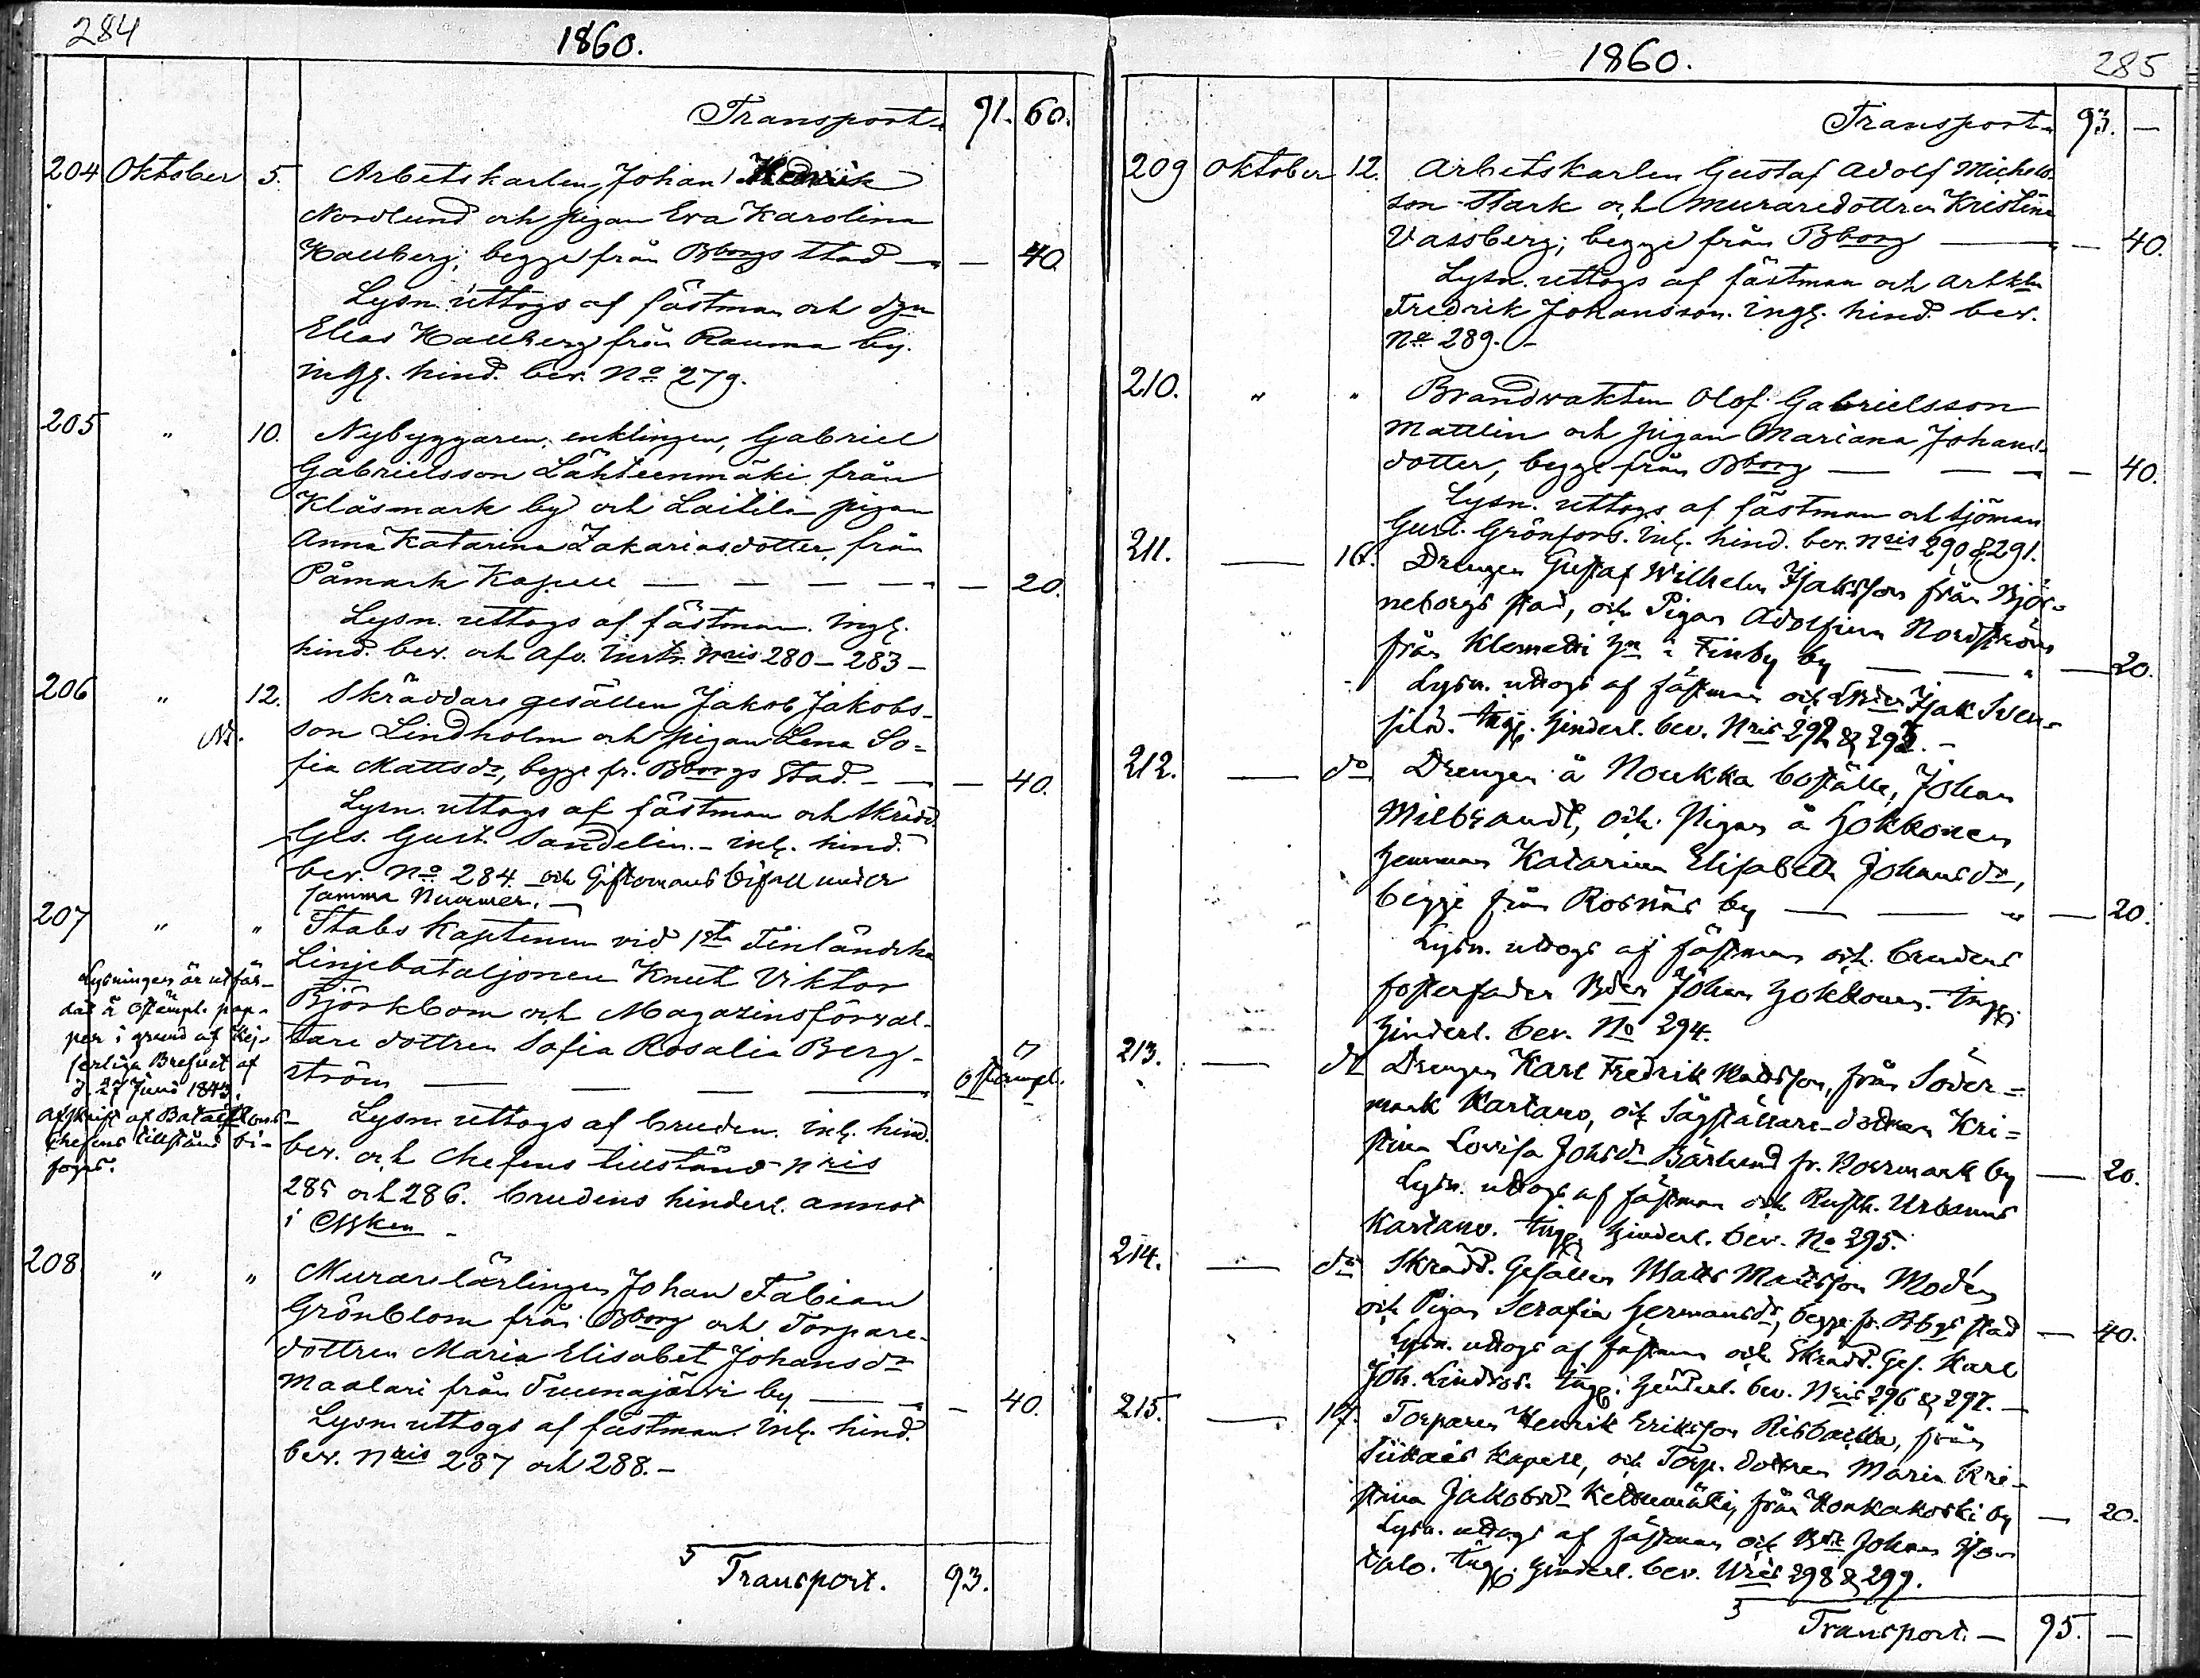 284
1860.
Transport. 91. 60.
204 Oktober 5. Arbetskarlen Johan Hedrik
Nordlund och pigan Eva Karolina
Hallberg; begge från Bborgs stad — 40.
Lysn. uttogs af fästman och dgn
Elias Hallberg från Rauma by.
ingf. hind. bev. No 279.
205 " 10. Nybyggaren, enklingen, Gabriel
Gabrielsson Lähteenmäki från
Klåsmark by och Laitila pigan
Anna Katarina Zakariasdotter, från
Påmark Kapell — — — — 20.
Lysn. uttogs af fästman. ingf.
hind. bev. och afv. Nris 280–283–
206 " 12. Skräddare gesällen Jakob Jakobs-
son Lindholm och pigan Lena So-
fia Mattsdr, begge fr. Bborgs Stad. — 40.
Lysn. uttogs af fästman och Skrädd.
Ges. Gust. Sandelin. – inf. hind.
bev. No 284. och Giftomans bifall under
samma Nummer. —
207 " " Stabs Kaptenen vid 1sta Finländska
Linjebataljonen Knut Viktor
Björkbom och Magazinsförval-
tare dottren Sofia Rosalia Berg-
ström — — — — ostempl.
Lysningen är utfär-
dad å ostämpl. pap-
per i grund af Kej-
serliga Brefvet af
d. 27 Juni 1843.
Afskrift af Bataillons-
chefens tillstånd bi-
fogas.
Lysn. uttogs af bruden. inf. hind.
bev. och chefens tillstånd Nris
285 och 286. brudens hinderl. annot
i
208 " " Murarelärlingen Johan Fabian
Grönblom från Bborg och Torpare-
dottren Maria Elisabet Johansdr
Maalari från Tuunajärvi by — 40.
Lysn. uttogs af fästman. inf. hind.
bev. Nris 287 och 288. –
Transport. 93.
1860.
285
Transport. 93. —
209 Oktober 12. Arbetskarlen Gustaf Adolf Michels-
son Stark och muraredottren Kristina
Vassberg; begge från Bborg — — 40.
Lysn. uttogs af fästman och arbkln
Fredrik Johansson. ingf. hind. bev.
No 289. –
210. " " Brandvakten Olof Gabrielsson
Mattlin och pigan Mariana Johans-
dotter, begge från Bborg — — — 40.
Lysn. uttogs af fästman och sjöman
Gust. Grönfors. inf. hind. bev. Nris 290 & 291.
211. — 16. Drengen Gustaf Wilhelm Isaksson från Björ-
neborgs stad, och Pigan Adolfina Nordström
från Klemetti hn i Finby by — — 20.
Lysn. uttogs af fästman och Isak Sven-
sila. ingf. hinderl. bev. Nris 292 & 293. –
212. — do Drengen å Noukka boställe, Johan
Milbrandt, och Pigan å Hokkonen
hemman Katarina Elisabeth Johansdr,
begge från Rosnäs by — — — 20.
Lysn. uttogs af fästman och brudens
fosterfader Bden Johan Hokkonen. ingf.
hinderl. bev. No 294.
213. — do Drengen Karl Fredrik Madsson, från Söder-
mark Kartano, och Sågställare-dottren Kri-
stina Lovisa Johsdr Bärlund fr. Norrmark by — 20.
Lysn. uttogs af fästman och Rusth. Urbanus
Kartano. ingf. hinderl. bev. No 295.
214. — do Skrädd. Gesällen Matts Mattsson Modén
och Pigan Serafia Hermansdr, begge fr. Bbgs stad — 40.
Lysn. uttogs af fästman och Skrädd. Ges. Karl
Joh. Lindros. ingf. hinderl. bev. Nris 296 & 297. —
215. — 17. Torparen Henrik Eriksson, från
Siikais Kapell, och Torp. dottren Maria Kri-
stina Jakobsdr från Honkakoski by — 20.
Lysn. uttogs af fästman och Bdn Johan
talo. ingf. hinderl. bev. Nris 298 & 299.
Transport. — 95. —